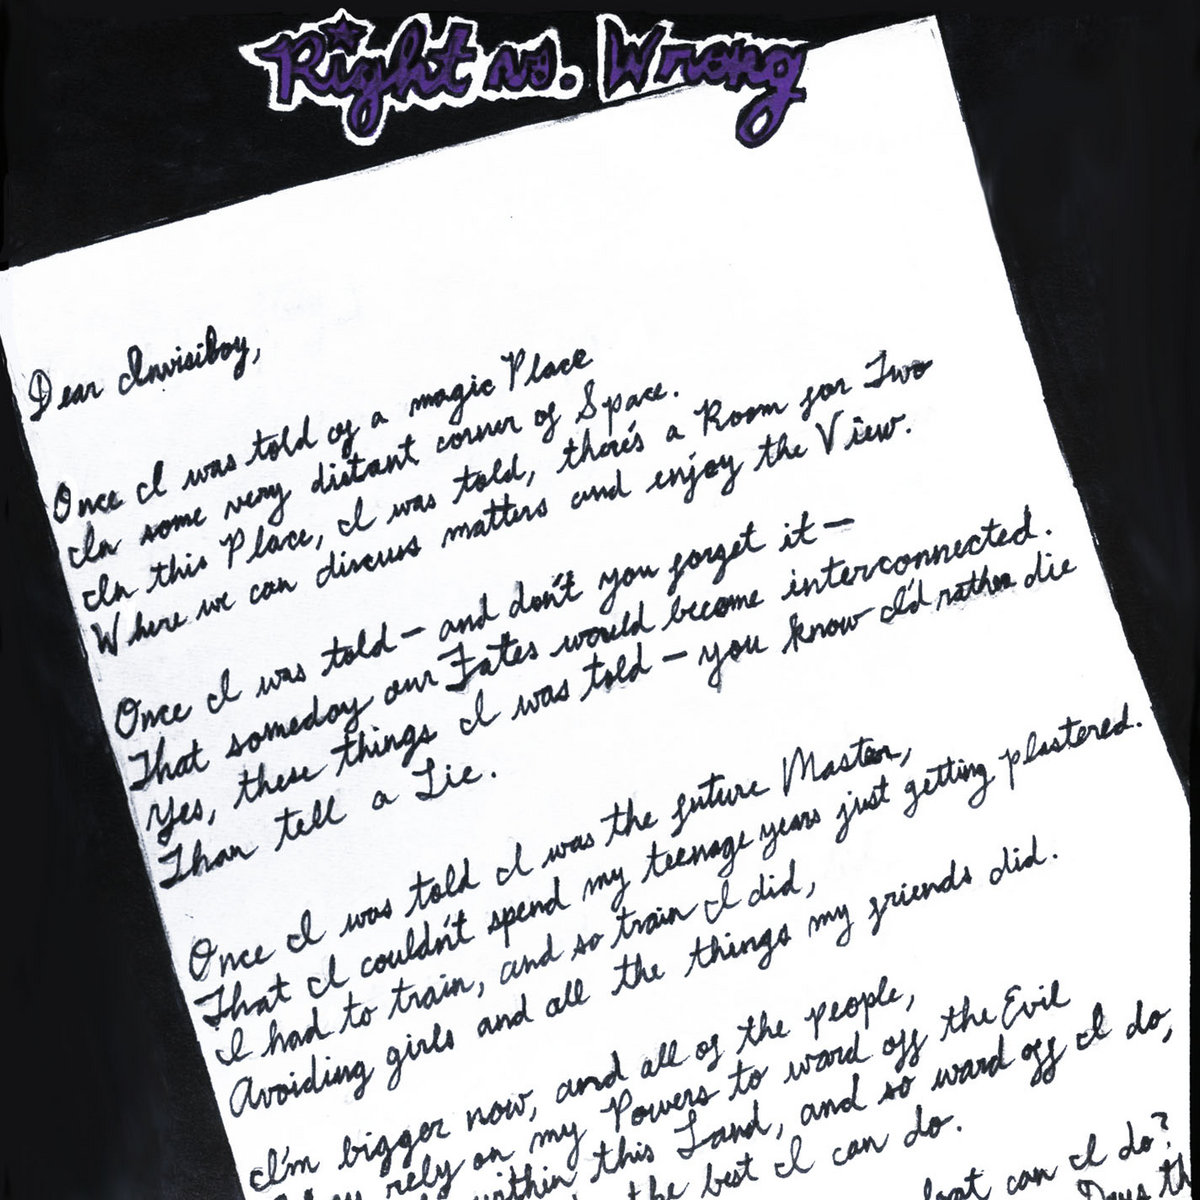 Right vs. Wrong
Dear Invisiboy,
Once I was told of a magic Place
In some very distant corner of Space.
In this Place, I was told, there's a Room for Two
Where we can discuss matters and enjoy the View.
Once I was told— and don't you forget it—
That someday our Fates would become interconnected.
Yes, these things I was told— you know I'd rather die
Than tell a Lie.
Once I was told I was the future Master,
That I couldn't spend my teenage years just getting plastered.
I had to train, and so train I did,
Avoiding girls and all the things my friends did.
I'm bigger now, and all of the people,
rely on my Powers to ward off the Evil
within this Land, and so ward off I do,
the best I can do.
can I do?
Days